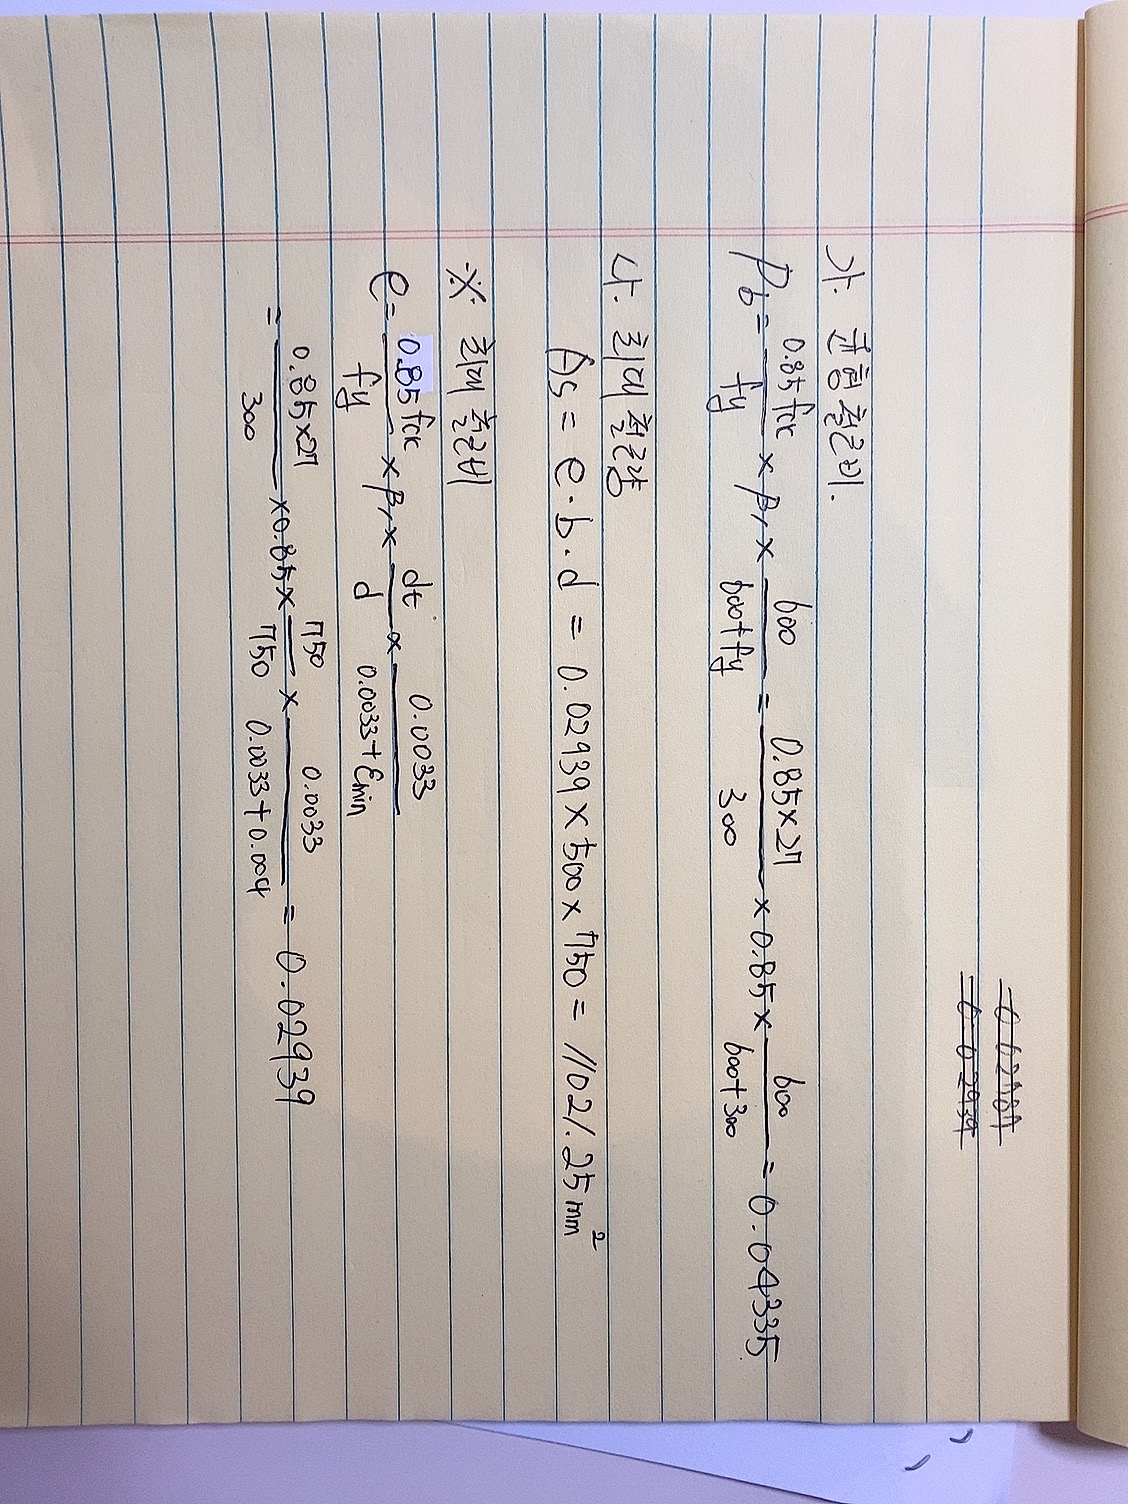 0.02939
가. 균형철근비.
ρb = 0.85fck/fy × β₁ × 600/600+fy = 0.85×27/300 × 0.85 × 600/600+300 = 0.04335
나. 최대철근량
As = ρ·b·d = 0.02939 × 500 × 750 = 11021.25 mm²
※ 최대철근비
ρ = 0.85fck/fy × β₁ × dt/d × 0.0033/0.0033+εmin
= 0.85×27/300 × 0.85 × 750/750 × 0.0033/0.0033+0.004 = 0.02939